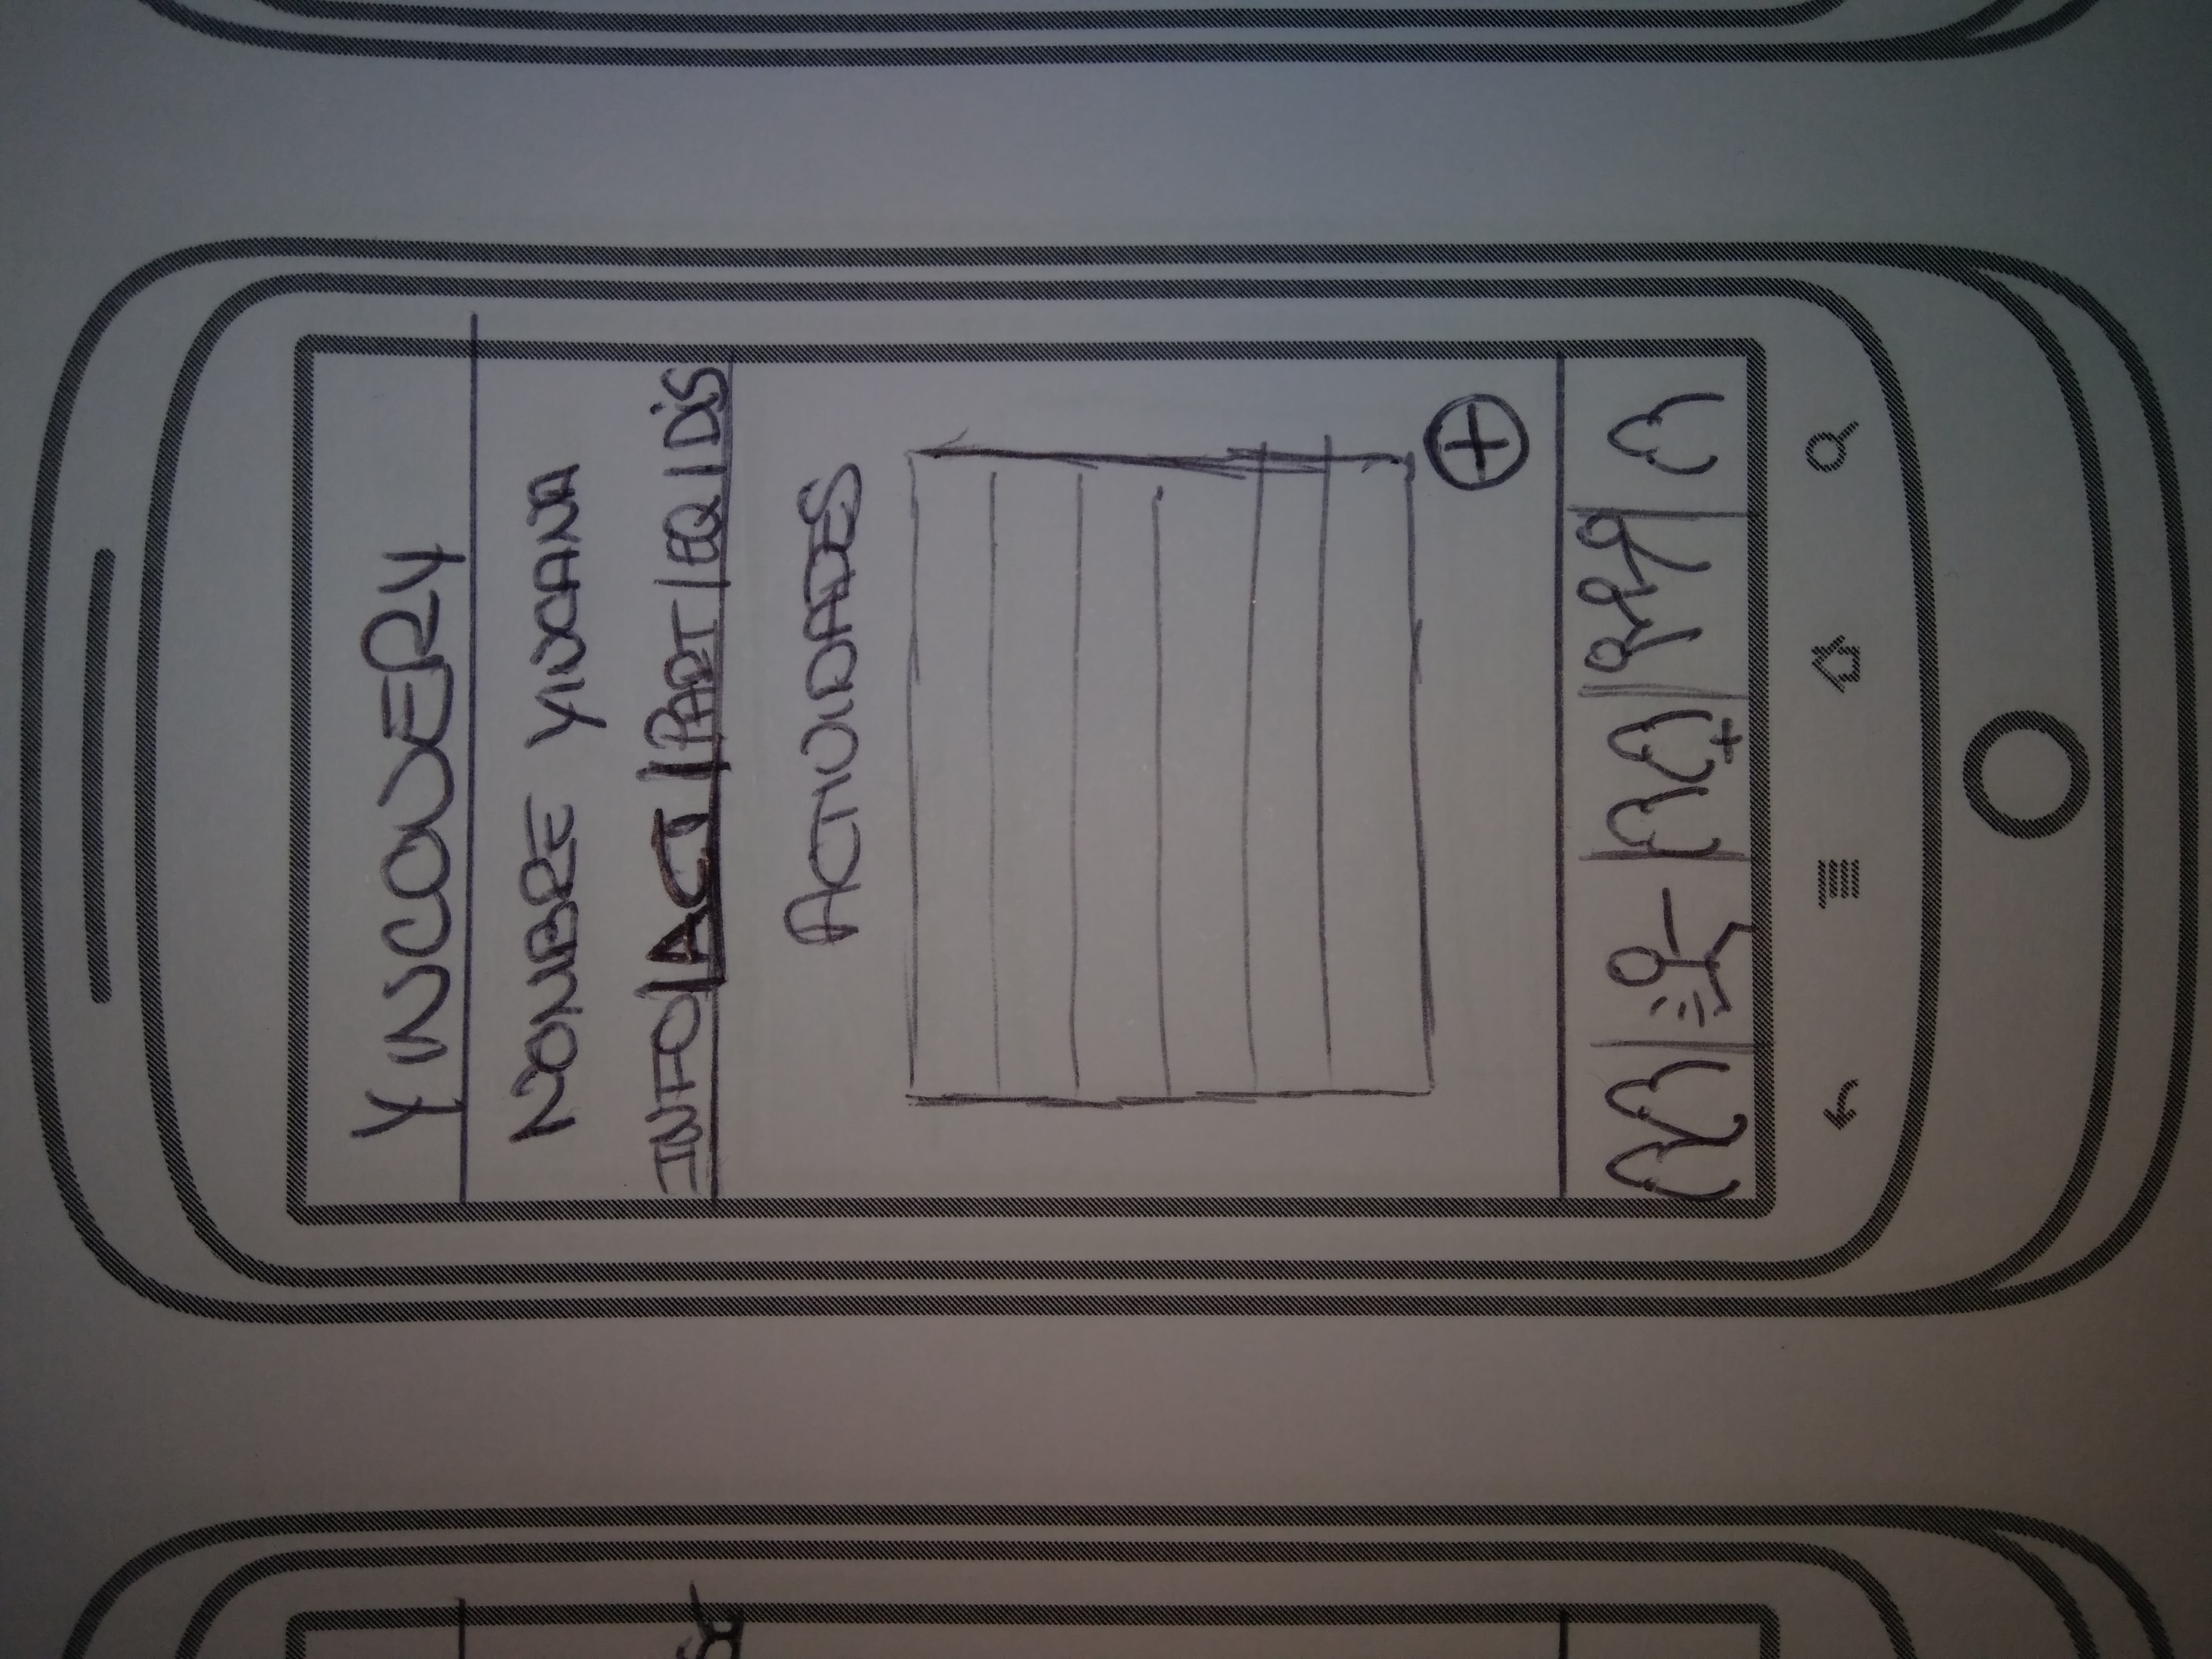 YINCOVERY
NOMBRE YINCANA
INFO|ACT|PART|EQ|DIS
ACTIVIDADES